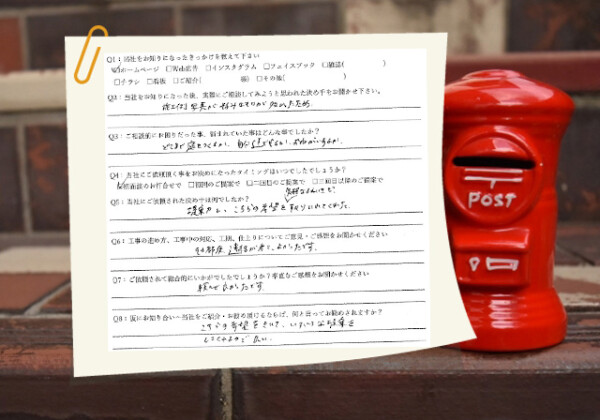 Q1：当社をお知りになったきっかけを教えて下さい
ホームページ □Web広告 □インスタグラム □フェイスブック □雑誌( )
□チラシ □看板 □ご紹介( 様) □その他( )
Q2：当社をお知りになった後、実際にご相談してみようと思われた決め手をお聞かせ下さい。
Q3：ご相談前にお困りだった事、悩まれていた事はどんな事でしたか？
Q4：当社にご依頼頂く事をお決めになったタイミングはいつでしたでしょうか？
初回面談のお打合せで □初回のご提案で □二回目のご提案で □三回目以降のご提案で
Q5：当社にご依頼された決め手は何でしたか？
提案力と、こちらの希望を取り入れてくれた。
Q6：工事の進め方、工事中の対応、工期、仕上りについてご意見・ご感想をお聞かせください
その都度、連絡が来て、よかったです。
Q7：ご依頼されて総合的にいかがでしたでしょうか？率直なご感想をお聞かせください
頼んで良かったです
Q8：仮にお知り合いへ当社をご紹介・お勧め頂けるならば、何と言ってお勧めされますか？
こちらの希望をきいて、いろいろな提案を
してくれるので良い。
POST